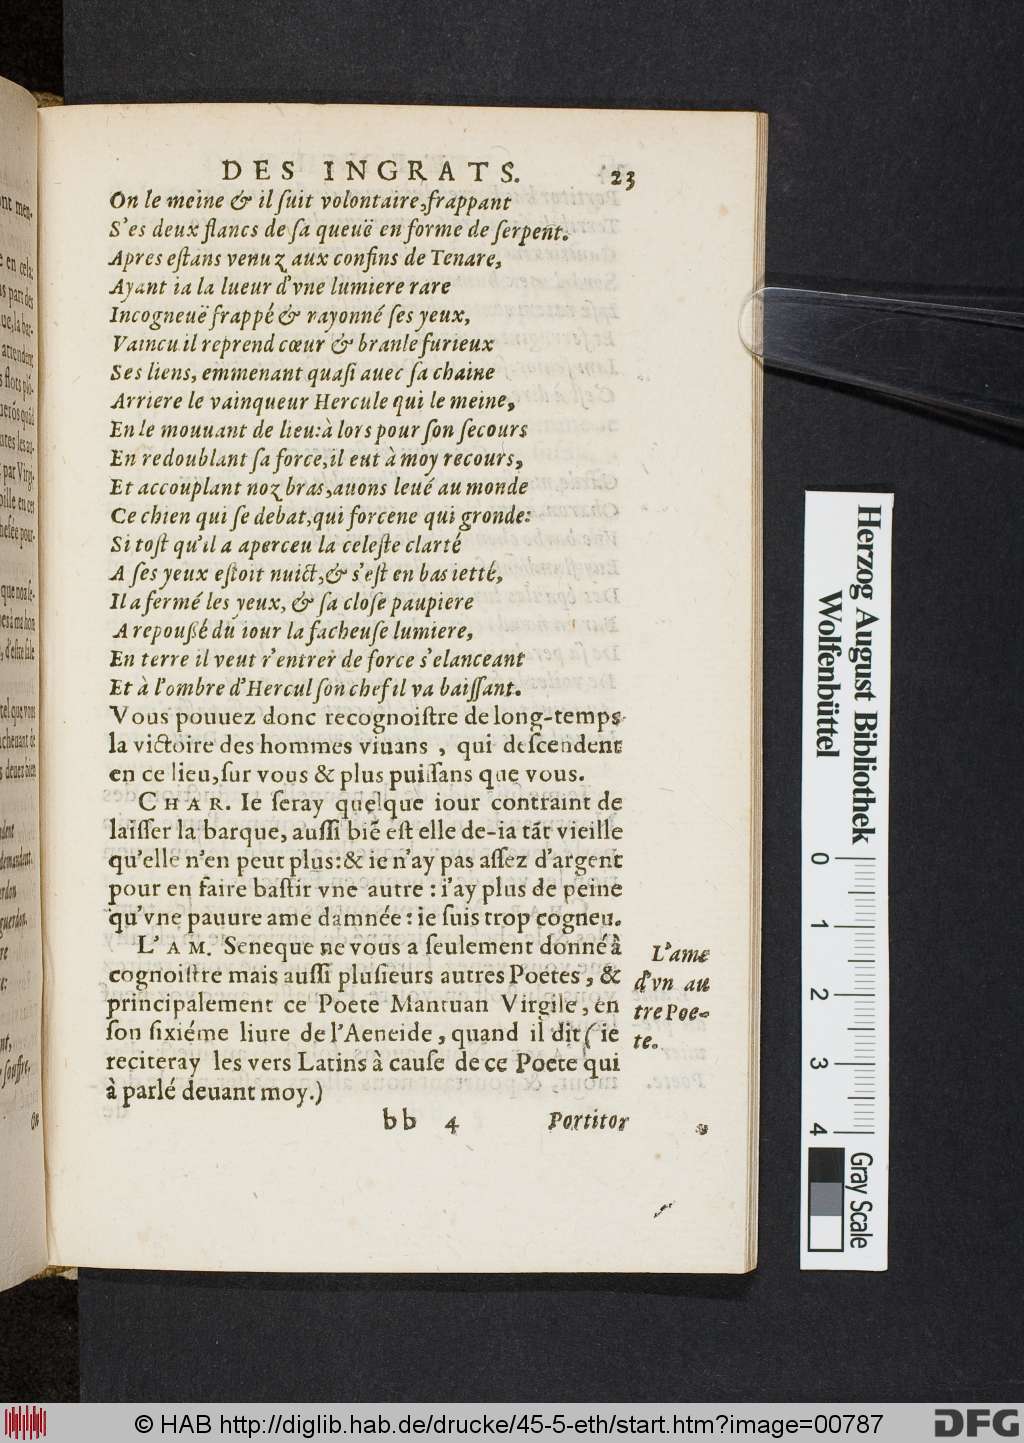 DES INGRATS. 23
On le meine & il ſuit volontaire, frappant
S'es deux flancs de ſa queuë en forme de ſerpent.
Apres eſtans venuz aux confins de Tenare,
Ayant ia la lueur d'vne lumiere rare
Incogneuë frappé & rayonné ſes yeux,
Vaincu il reprend cœur & branle furieux
Ses liens, emmenant quaſi auec ſa chaine
Arriere le vainqueur Hercule qui le meine,
En le mouuant de lieu: à lors pour ſon ſecours
En redoublant ſa force, il eut à moy recours,
Et accouplant noz bras, auons leué au monde
Ce chien qui ſe debat, qui forcene qui gronde:
Si toſt qu'il a aperceu la celeſte clarté
A ſes yeux eſtoit nuict, & s'eſt en bas ietté,
Il a fermé les yeux, & ſa cloſe paupiere
A repouſſé du iour la facheuſe lumiere,
En terre il veut r'entrer de force s'elanceant
Et à l'ombre d'Hercul ſon chef il va baiſſant.
Vous pouuez donc recognoiſtre de long-temps
la victoire des hommes viuans , qui deſcendent
en ce lieu, ſur vous & plus puiſſans que vous.
CHAR. Ie ſeray quelque iour contraint de
laiſſer la barque, auſſi biē eſt elle de-ia tāt vieille
qu'elle n'en peut plus: & ie n'ay pas aſſez d'argent
pour en faire baſtir vne autre : i'ay plus de peine
qu'vne pauure ame damnée : ie ſuis trop cogneu.
L'AM. Seneque ne vous a ſeulement donné à
cognoiſtre mais auſſi pluſieurs autres Poetes, &
principalement ce Poete Mantuan Virgile, en
ſon ſixiéme liure de l'Aeneide, quand il dit ( ie
reciteray les vers Latins à cauſe de ce Poete qui
à parlé deuant moy.)
L'ame
d'vn au
tre Poe-
te.
bb 4 Portitor
Herzog August Bibliothek
Wolfenbüttel
0 1 2 3 4
Gray Scale
© HAB http://diglib.hab.de/drucke/45-5-eth/start.htm?image=00787
DFG